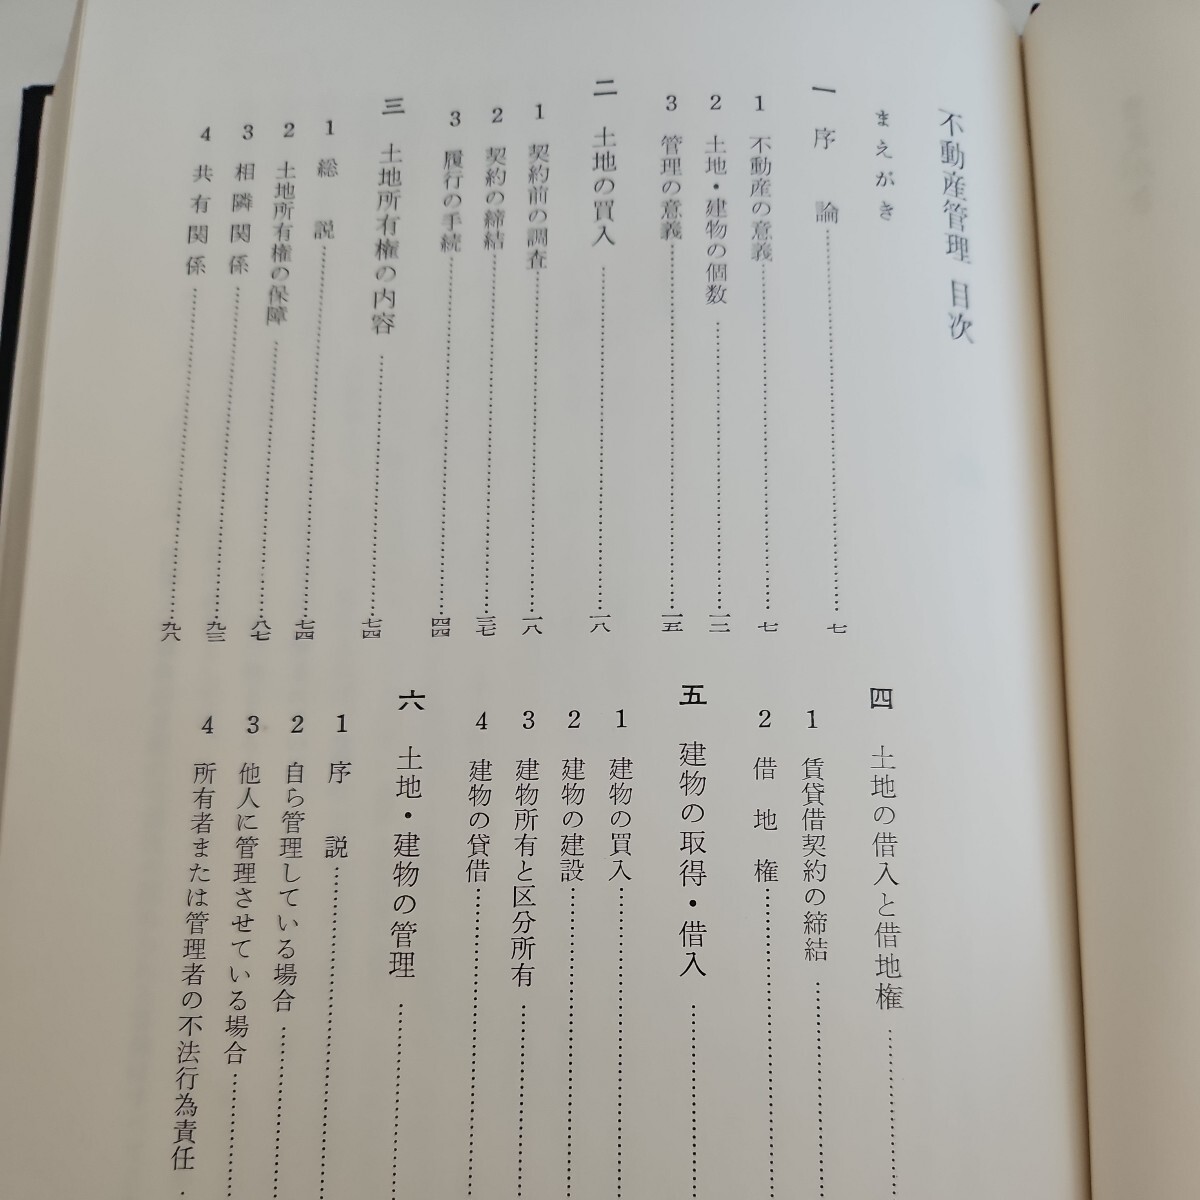 不動産管理 目次
まえがき
一 序論 七
1 不動産の意義 七
2 土地・建物の個数 一二
3 管理の意義 一五
二 土地の買入 一八
1 契約前の調査 一八
2 契約の締結 三七
3 履行の手続 四四
三 土地所有権の内容 七四
1 総説 七四
2 土地所有権の保障 八七
3 相隣関係 九三
4 共有関係 九八
四 土地の借入と借地権
1 賃貸借契約の締結
2 借地権
五 建物の取得・借入
1 建物の買入
2 建物の建設
3 建物所有と区分所有
4 建物の貸借
六 土地・建物の管理
1 序説
2 自ら管理している場合
3 他人に管理させている場合
4 所有者または管理者の不法行為責任